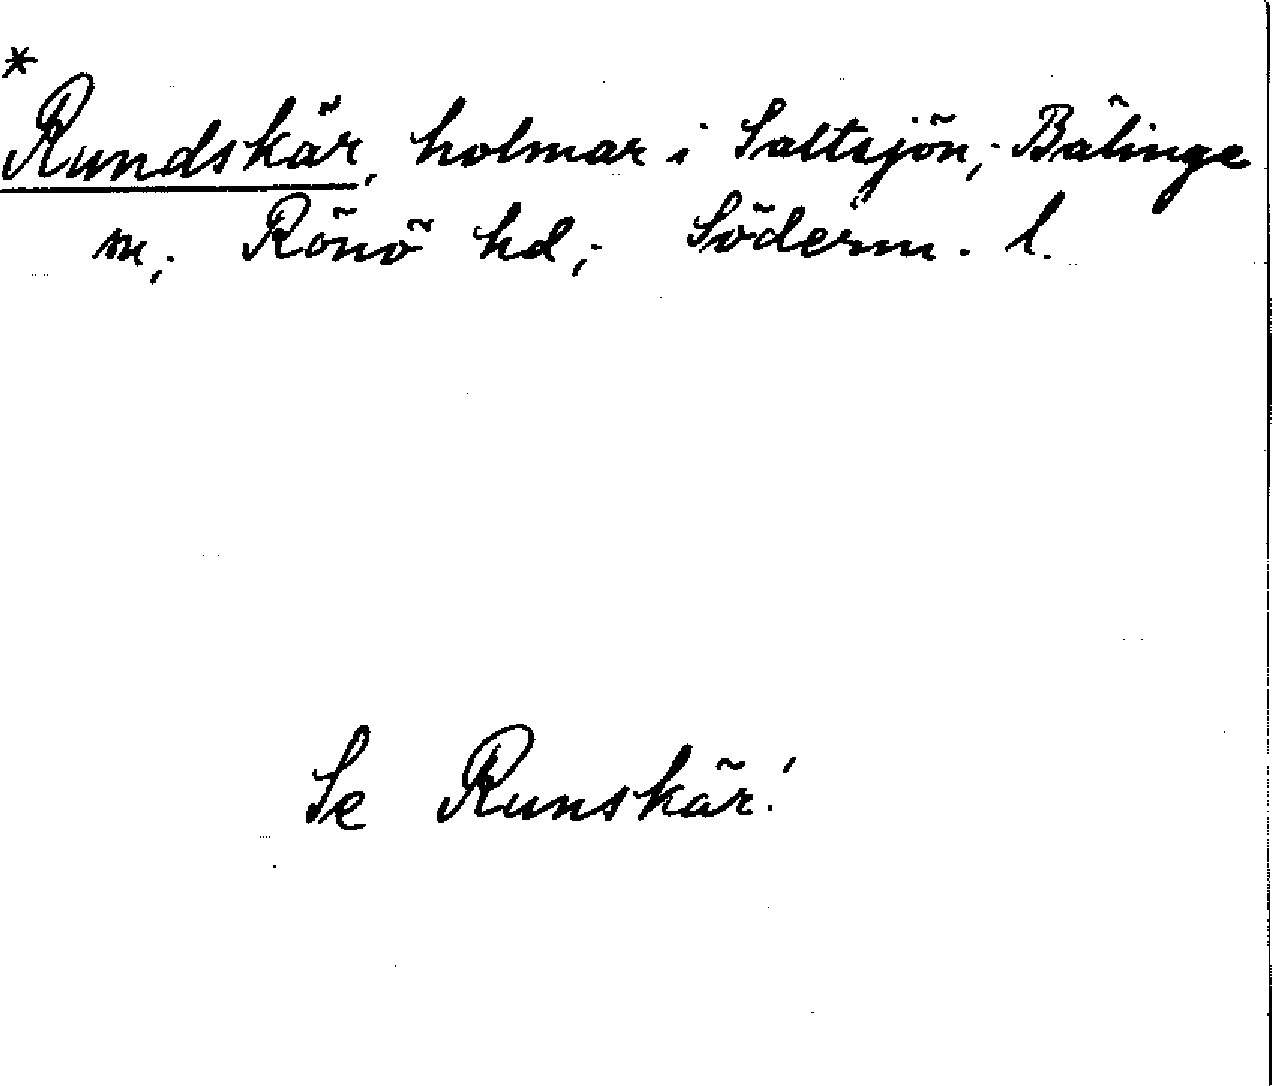 *
Rundskär, holmar i Saltsjön, Bälinge
sn, Rönö hd, Söderm. l.
Se Runskär!